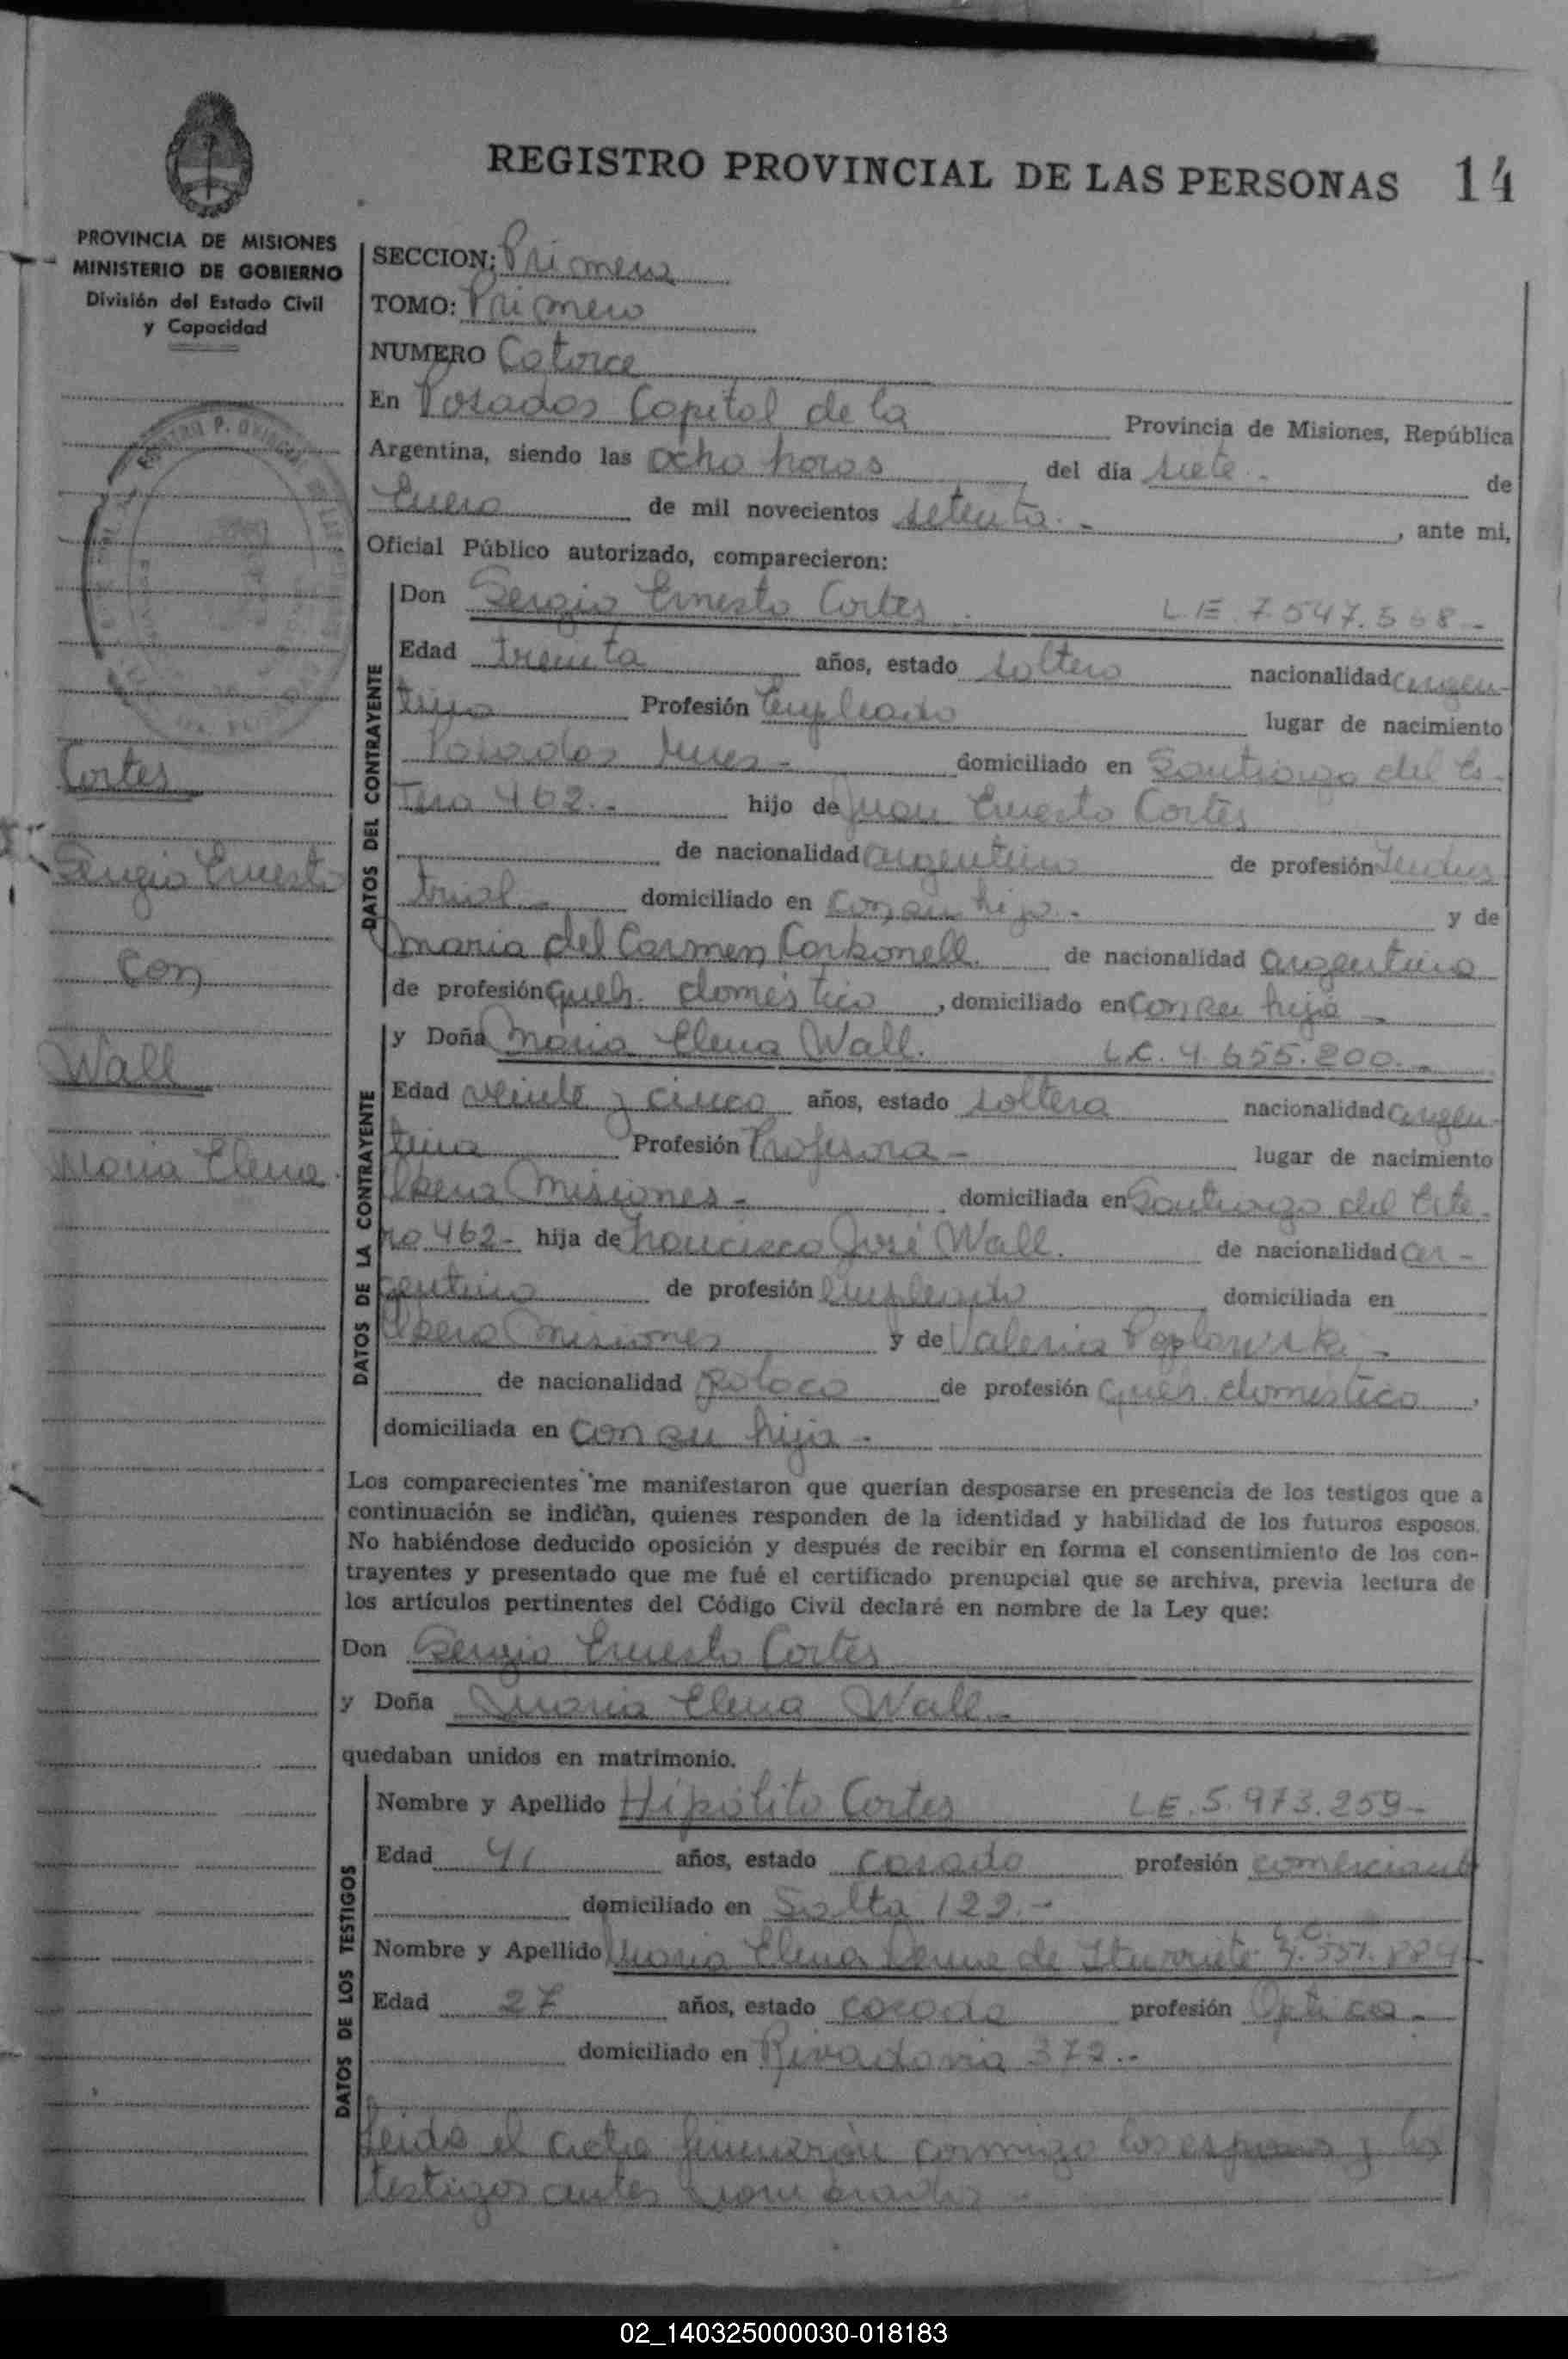 REGISTRO PROVINCIAL DE LAS PERSONAS 14
PROVINCIA DE MISIONES
MINISTERIO DE GOBIERNO
División del Estado Civil
y Capacidad
SECCION: Primera
TOMO: Primero
NUMERO Catorce
En Posadas Capital de la Provincia de Misiones, República
Argentina, siendo las ocho horas del día siete - de
Enero de mil novecientos setenta. - , ante mi,
Oficial Público autorizado, comparecieron:
DATOS DEL CONTRAYENTE
Don Sergio Ernesto Cortes L.E. 7.547.568 -
Edad Treinta años, estado soltero nacionalidad argen-
tino Profesión Empleado lugar de nacimiento
Posadas Mnes - domiciliado en Santiago del Es-
tero 462. - hijo de Juan Ernesto Cortes
de nacionalidad argentino de profesión Indus
trial - domiciliado en con su hijo - y de
Maria del Carmen Carbonell de nacionalidad argentina
de profesión queh. doméstico , domiciliado en con su hijo -
Cortes
Sergio Ernesto
con
Wall
Maria Elena
DATOS DE LA CONTRAYENTE
y Doña Maria Elena Wall. L.C. 4.655.200. -
Edad veinte y cinco años, estado soltera nacionalidad argen-
tina Profesión Profesora - lugar de nacimiento
Obera Misiones - domiciliada en Santiago del Este-
ro 462 - hija de Francisco José Wall. de nacionalidad ar-
gentino de profesión Empleado domiciliada en
Obera Misiones y de Valeria Poplawski -
de nacionalidad polaca de profesión queh. domestico ,
domiciliada en con su hija -
Los comparecientes me manifestaron que querían desposarse en presencia de los testigos que a
continuación se indican, quienes responden de la identidad y habilidad de los futuros esposos.
No habiéndose deducido oposición y después de recibir en forma el consentimiento de los con-
trayentes y presentado que me fué el certificado prenupcial que se archiva, previa lectura de
los artículos pertinentes del Código Civil declaré en nombre de la Ley que:
Don Sergio Ernesto Cortes
y Doña Maria Elena Wall -
quedaban unidos en matrimonio.
DATOS DE LOS TESTIGOS
Nombre y Apellido Hipólito Cortes L.E. 5.973.259 -
Edad 41 años, estado casado profesión comerciante
domiciliado en Salta 122. -
Nombre y Apellido Maria Elena de Iturriete L.C.
Edad 27 años, estado casada profesión Optica -
domiciliado en Rivadavia 372. -
Leida el acta firmarón conmigo los esposos y los
testigos antes nombrados -
02_140325000030-018183